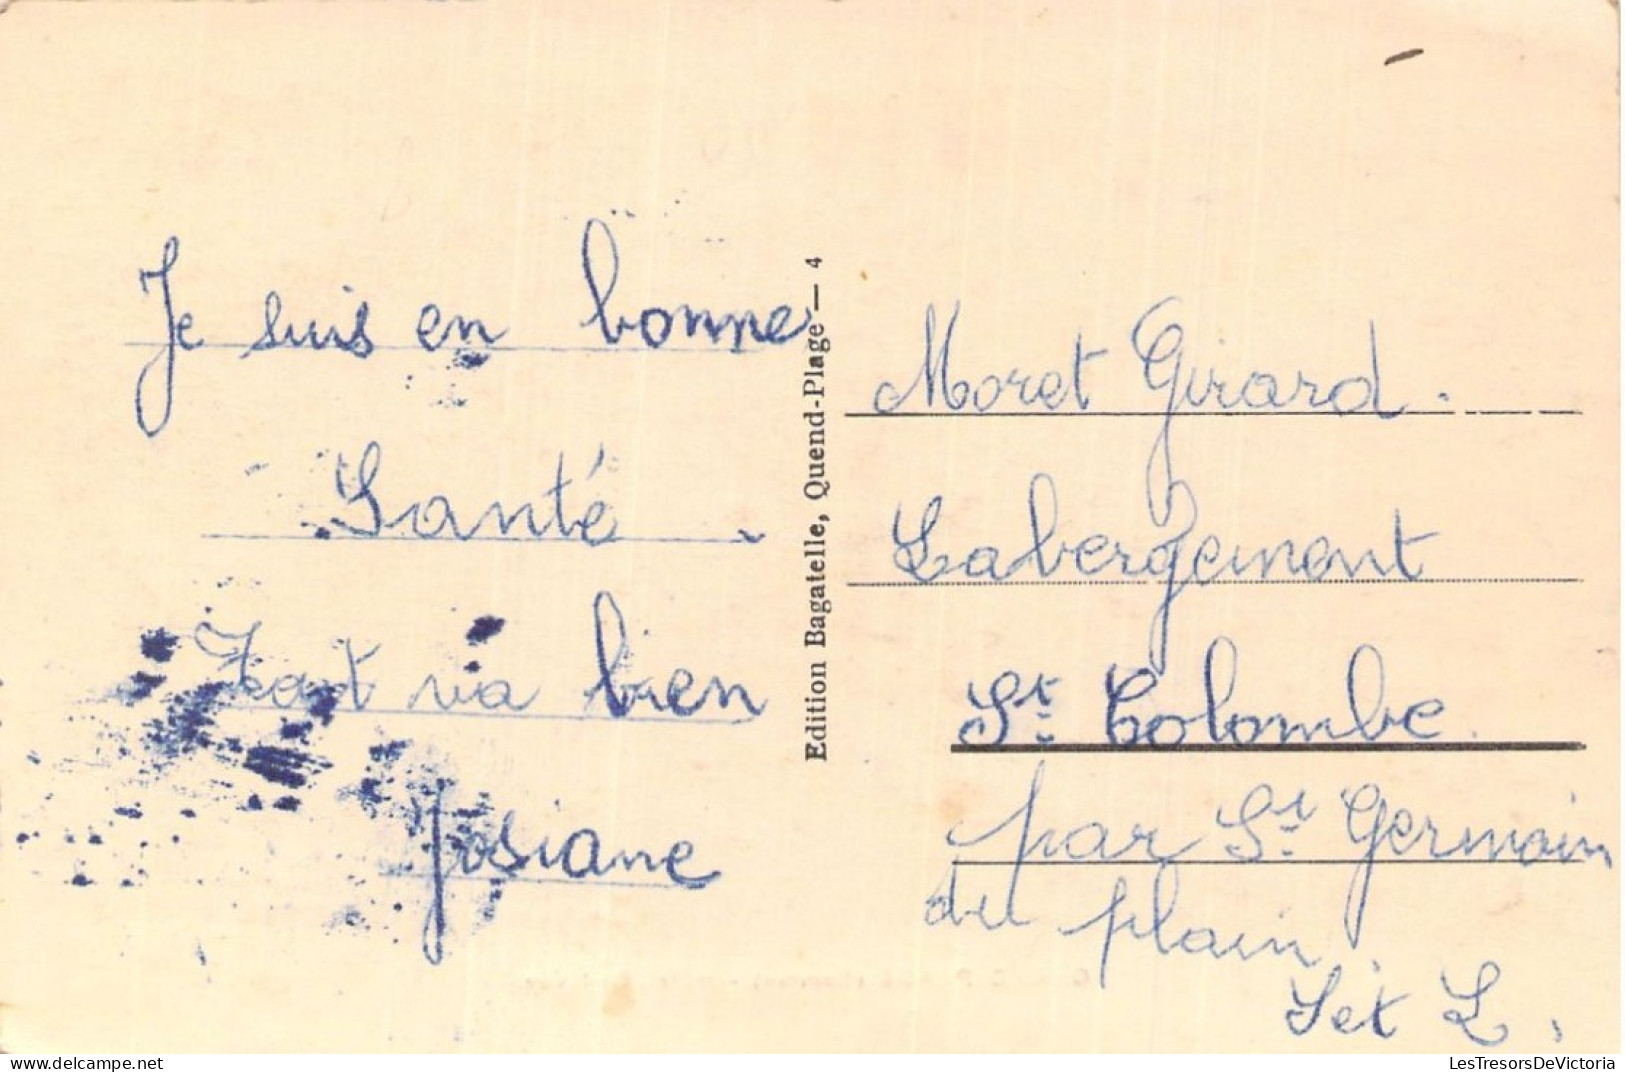 Je suis en bonne
Santé
Tout va bien
Josiane
Edition Bagatelle, Quend-Plage — 4
Moret Girard.
Labergement
St. Colombe.
par St. Germain
du plain.
S et L.
LesTresorsDeVictoria
https://www.delcampe.net/en_US/collectibles/store/LesTresorsDeVictoria